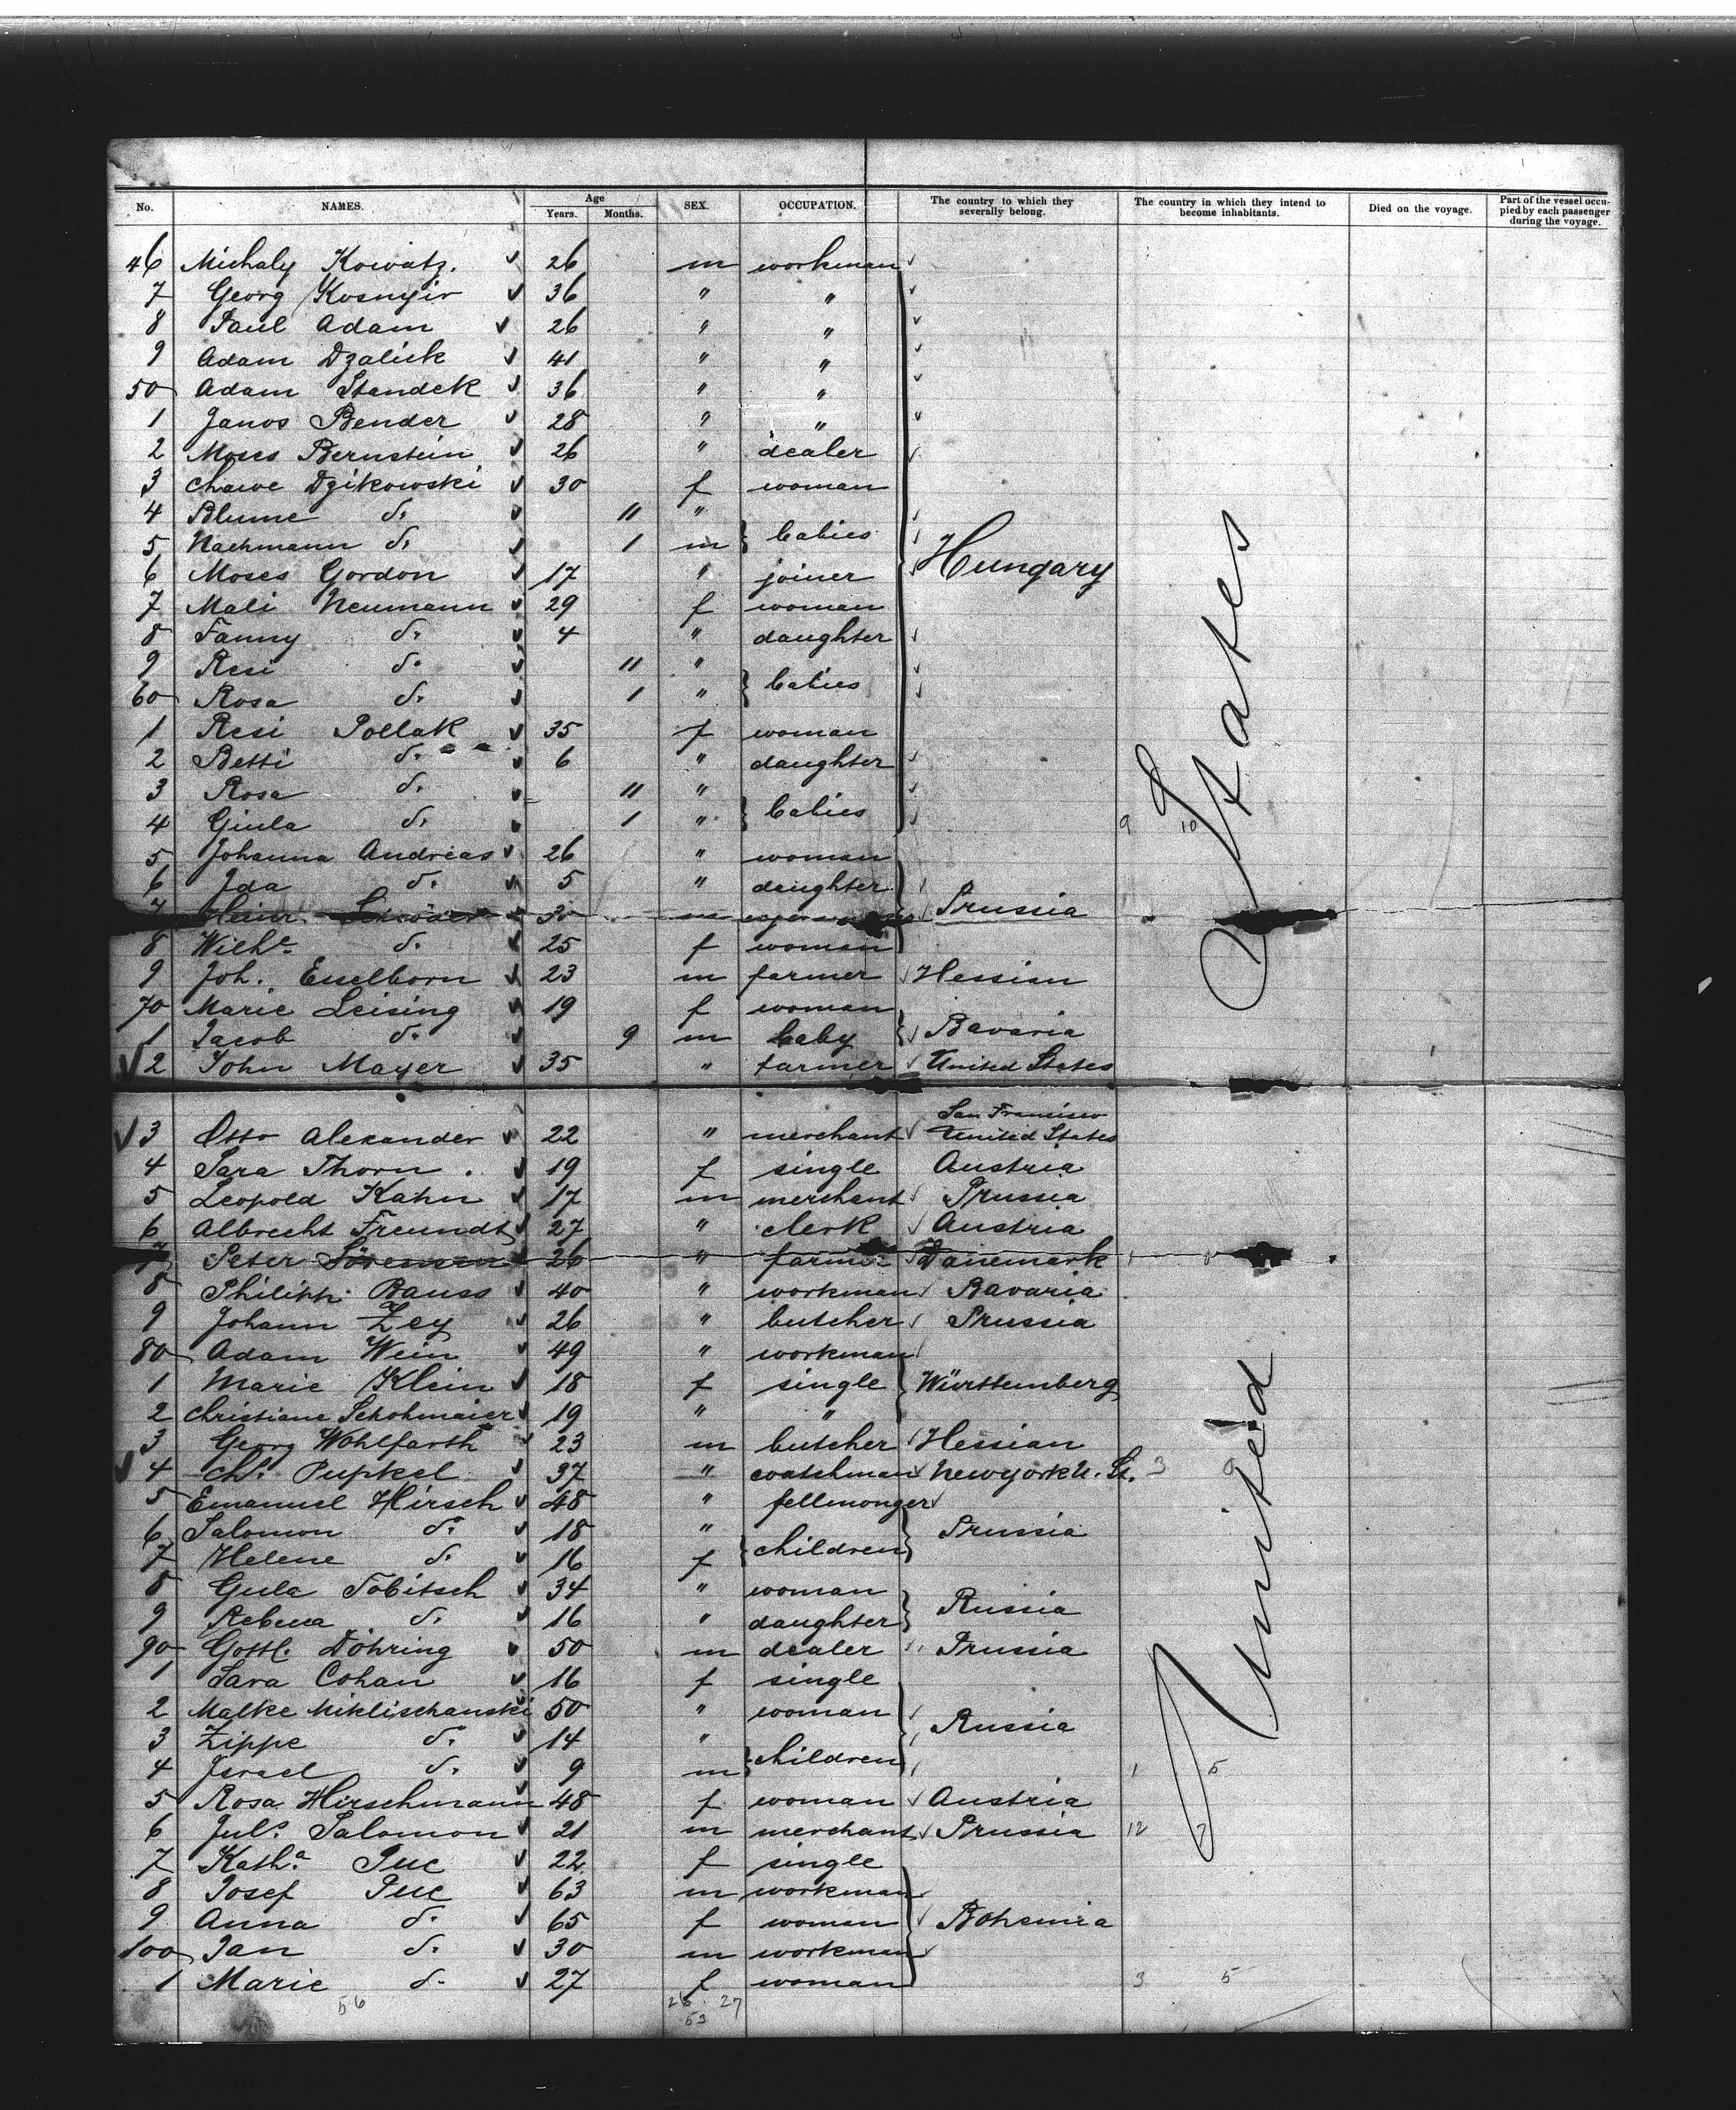 No. NAMES. Age Years. Months. SEX. OCCUPATION. The country to which they severally belong. The country in which they intend to become inhabitants. Died on the voyage. Part of the vessel occupied by each passenger during the voyage.
46 Michaly Kowatz. 26 m workman
7 Georg Kosnyir 36 " "
8 Paul Adam 26 " "
9 Adam Dzaliik 41 " "
50 Adam Standek 36 " "
1 Janos Bender 28 " "
2 Moses Bernstein 26 " dealer
3 Chawe Dzikowski 30 f woman
4 Blume d. 11 "
5 Nachmann d. 1 m babies Hungary
6 Moses Gordon 17 " joiner
7 Mali Neumann 29 f woman
8 Fanny d. 4 " daughter
9 Resi d. 11 "
60 Rosa d. 1 " babies
1 Resi Pollak 35 f woman
2 Betti d. 6 " daughter
3 Rosa d. 11 "
4 Giula d. 1 " babies 9 10
5 Johanna Andreas 26 " woman
6 Ida d. 5 " daughter
7 Heinr. Schröder 30 m Prussia
8 Wilhe. d. 25 f woman
9 Joh. Esselborn 23 m farmer Hessian
70 Marie Leising 19 f woman
1 Jacob d. 9 m baby Bavaria
2 John Mayer 35 " farmer United States
3 Otto Alexander 22 " merchant San Francisco United States
4 Sara Thorn. 19 f single Austria
5 Leopold Kahn 17 m merchant Prussia
6 Albrecht Freundt 27 " clerk Austria
7 Peter Sörensen 26 " farmer Danemark
8 Philipp Bauss 40 " workman Bavaria
9 Johann Zey 26 " butcher Prussia
80 Adam Wein 49 " workman
1 Marie Klein 18 f single Württemberg
2 Christiane Schohmaier 19 " "
3 Georg Wohlfarth 23 m butcher Hessian
4 Chs. Pupkel 37 " coatchman Newyork U. St. 3
5 Emanuel Hirsch 48 " fellmonger
6 Salomon d. 18 " Prussia
7 Helene d. 16 f children
8 Gula Tobitsch 34 " woman
9 Rebecca d. 16 " daughter Russia
90 Gottl. Döhring 50 m dealer Prussia
1 Sara Cohan 16 f single
2 Malke Miklischanski 50 " woman
3 Zippe d. 14 " Russia
4 Israel d. 9 m children 1 5
5 Rosa Hirschmann 48 f woman Austria
6 Juls. Salomon 21 m merchant Prussia 12 7
7 Katha. Puc 22 f single
8 Josef Puc 63 m workman
9 Anna d. 65 f woman Bohemia
100 Jan d. 30 m workman
1 Marie d. 27 f woman 3 5
56 26 27
53
United States